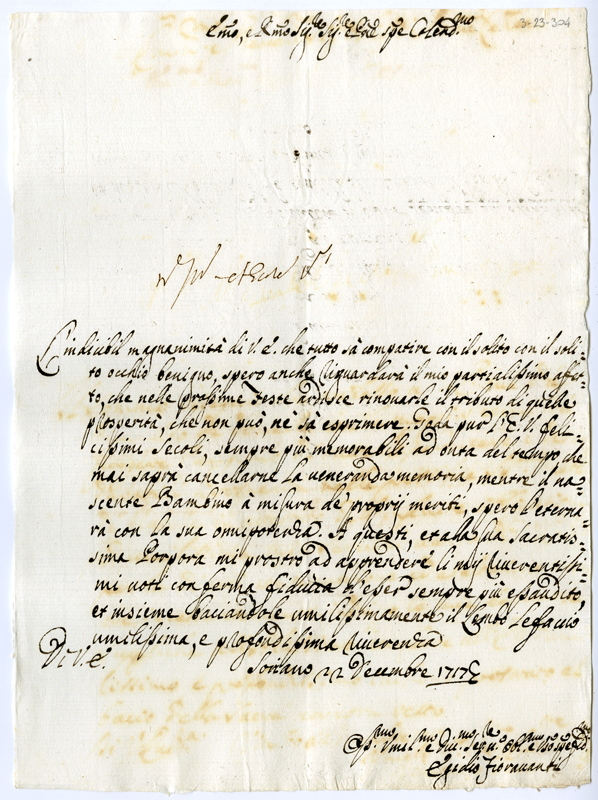 3-23-304
Emo, e Rmo Sig.re Sig.re Pne Colend.mo
L'indicibil magnanimità di V. E. che tutto sà compatire con il solito con il soli-
to occhio benigno, spero anche riguardarà il mio partialissimo afet-
to, che nelle prossime Feste ardisce rinouarle il tributo di quelle
prosperità, che non può, nè sà esprimere. Goda pur l'E. V. feli-
cissimi secoli, sempre più memorabili ad onta del tempo che
mai saprà cancellarne la veneranda memoria, mentre il na-
scente Bambino à misura de' proprij meriti, spero l'eterna-
rà con la sua omnipotenza. A questi, et alla sua Sacratis-
sima Porpora mi prostro ad appendere li miij riuerentissi-
mi uoti con ferma fiducia d'esser sempre più essaudito,
et insieme baciandole umilissimamente il Lembo le faccio
umilissima, e profondissima riuerenza
Di V. E.
Soriano 22 Decembre 1717
Vmil.mo e Diu.mo Seru.re Obl.mo
Egidio Fiorauanti